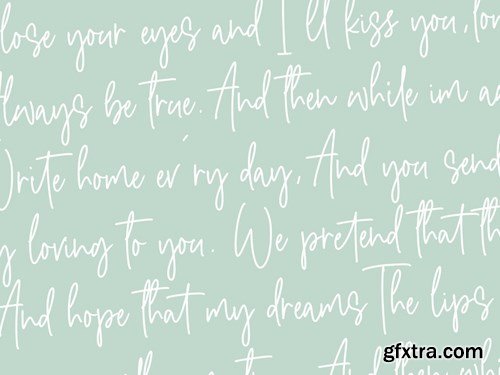 lose your eyes and I'll kiss you, tom
Always be true. And then while im aw
Write home ev'ry day, And you send
y loving to you. We pretend that th
And hope that my dreams The lips
And then whi
gfxtra.com